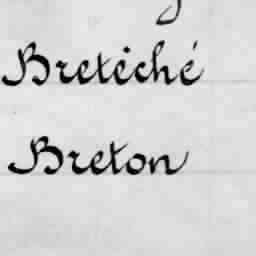 Bretêché
Breton